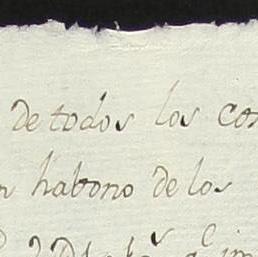 de todos los con
n habono de los